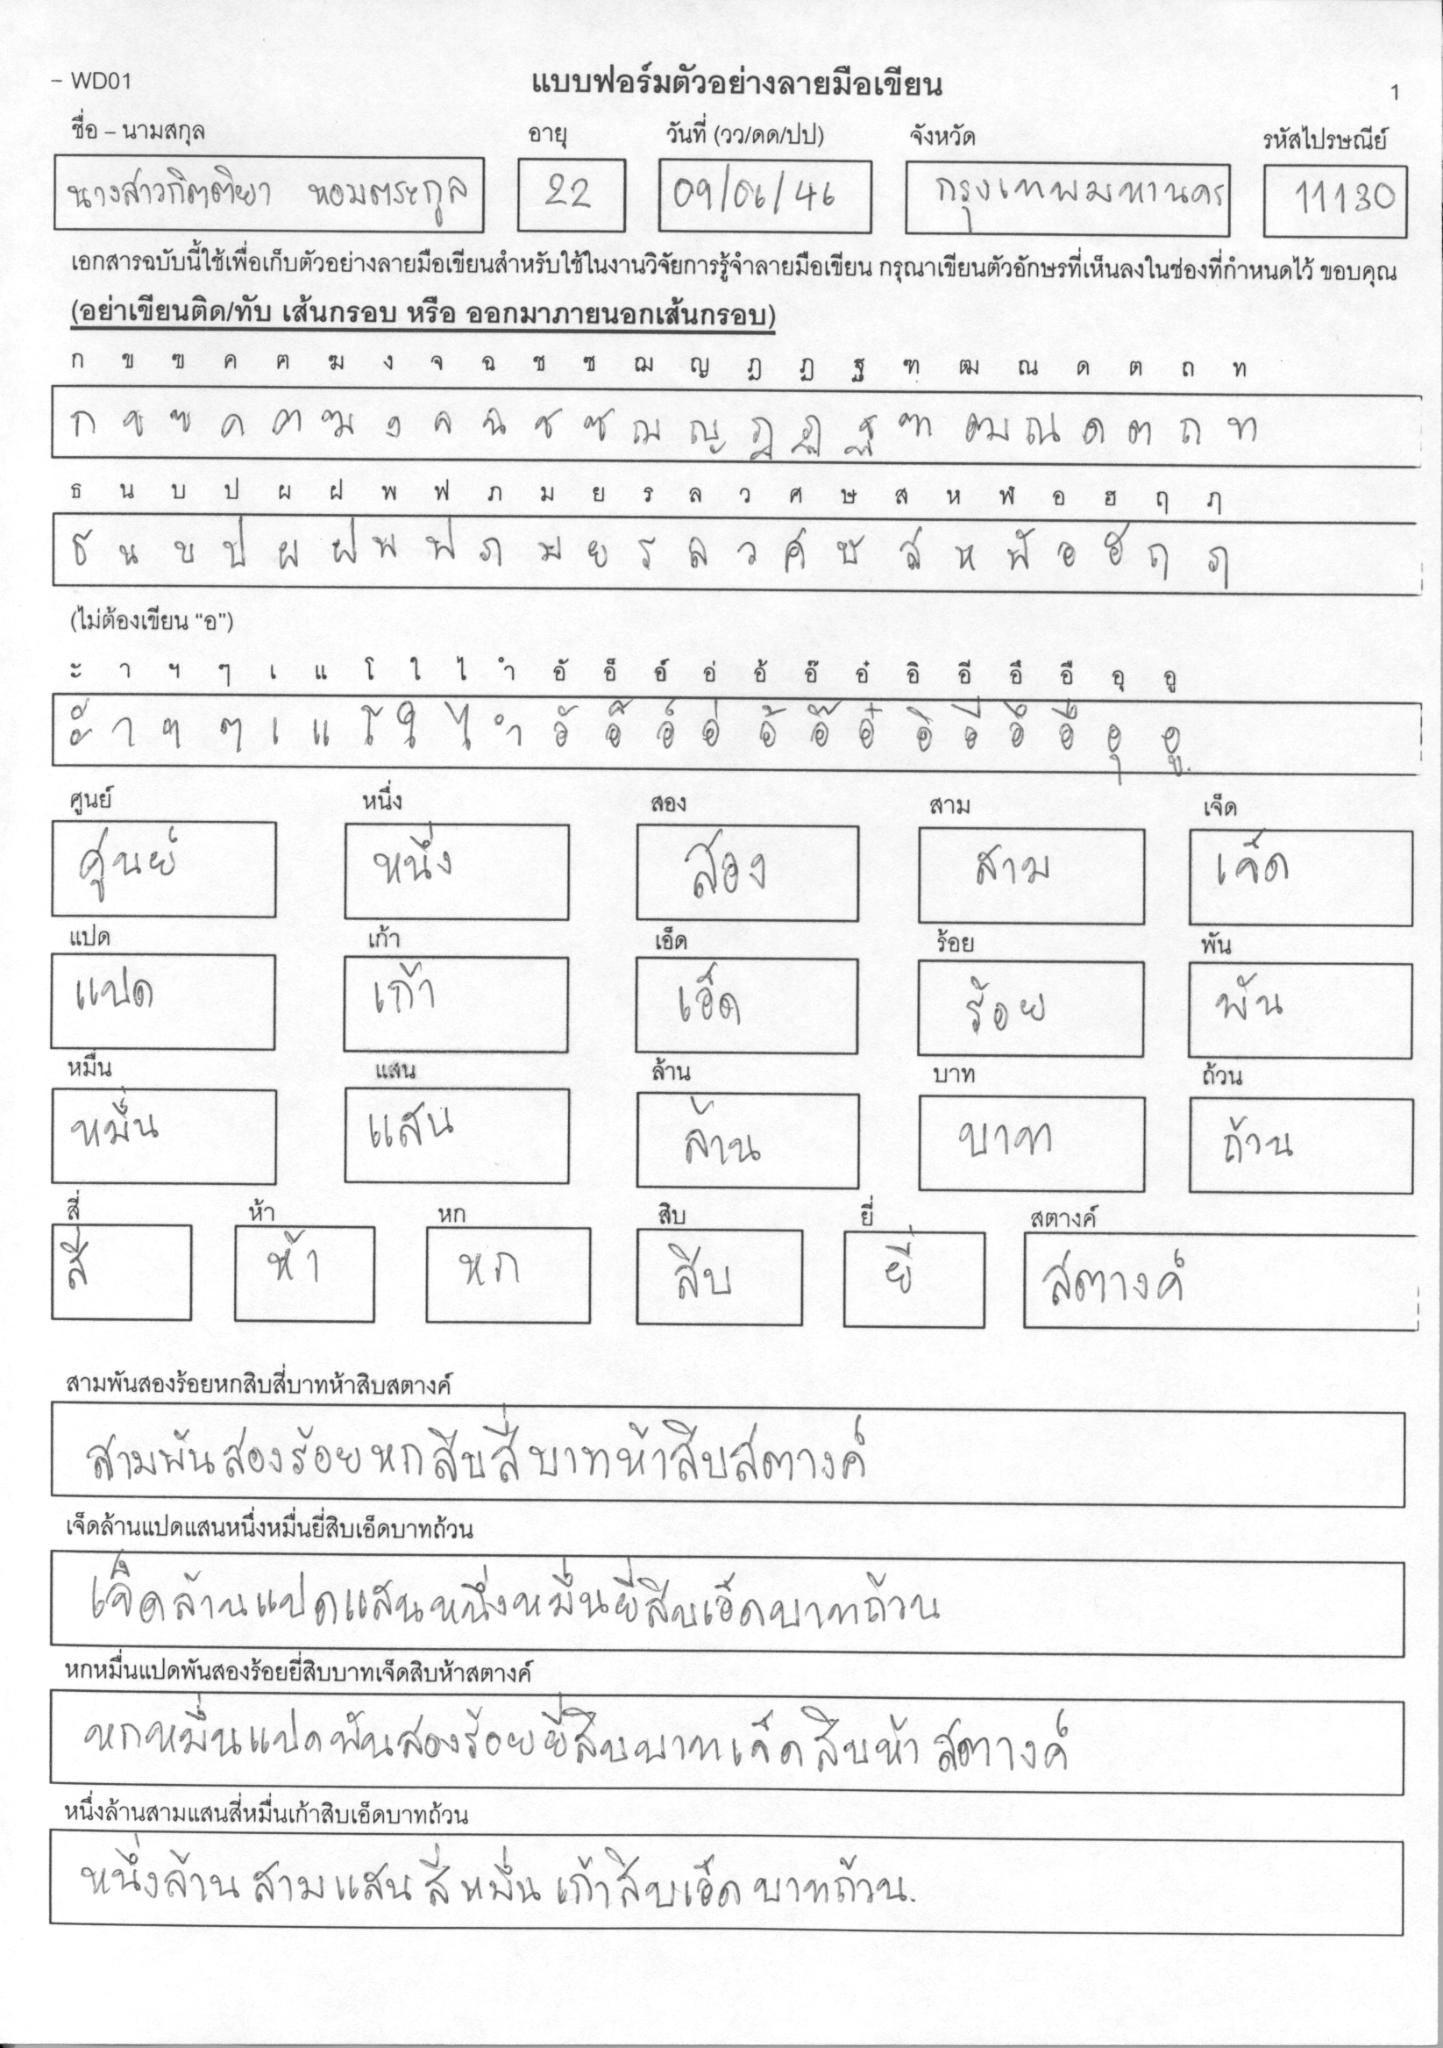 – WD01 แบบฟอร์มตัวอย่างลายมือเขียน 1
ชื่อ – นามสกุล อายุ วันที่ (วว/ดด/ปป) จังหวัด รหัสไปรษณีย์
นางสาวกิตติยา หอมตระกูล 22 09/06/46 กรุงเทพมหานคร 11130
เอกสารฉบับนี้ใช้เพื่อเก็บตัวอย่างลายมือเขียนสำหรับใช้ในงานวิจัยการรู้จำลายมือเขียน กรุณาเขียนตัวอักษรที่เห็นลงในช่องที่กำหนดไว้ ขอบคุณ
(อย่าเขียนติด/ทับ เส้นกรอบ หรือ ออกมาภายนอกเส้นกรอบ)
ก ข ฃ ค ฅ ฆ ง จ ฉ ช ซ ฌ ญ ฎ ฏ ฐ ฑ ฒ ณ ด ต ถ ท
ก ข ฃ ค ฅ ฆ ง จ ฉ ช ซ ฌ ญ ฎ ฏ ฐ ฑ ฒ ณ ด ต ถ ท
ธ น บ ป ผ ฝ พ ฟ ภ ม ย ร ล ว ศ ษ ส ห ฬ อ ฮ ฤ ฦ
ธ น บ ป ผ ฝ พ ฟ ภ ม ย ร ล ว ศ ษ ส ห ฬ อ ฮ ฤ ฦ
(ไม่ต้องเขียน “อ”)
ะ า ฯ ๆ เ แ โ ใ ไ ำ อั อ็ อ์ อ่ อ้ อ๊ อ๋ อิ อี อึ อื อุ อู
ะ า ฯ ๆ เ แ โ ใ ไ ำ อั อ็ อ์ อ่ อ้ อ๊ อ๋ อิ อี อึ อื อุ อู
ศูนย์ หนึ่ง สอง สาม เจ็ด
ศูนย์ หนึ่ง สอง สาม เจ็ด
แปด เก้า เอ็ด ร้อย พัน
แปด เก้า เอ็ด ร้อย พัน
หมื่น แสน ล้าน บาท ถ้วน
หมื่น แสน ล้าน บาท ถ้วน
สี่ ห้า หก สิบ ยี่ สตางค์
สี่ ห้า หก สิบ ยี่ สตางค์
สามพันสองร้อยหกสิบสี่บาทห้าสิบสตางค์
สามพันสองร้อยหกสิบสี่บาทห้าสิบสตางค์
เจ็ดล้านแปดแสนหนึ่งหมื่นยี่สิบเอ็ดบาทถ้วน
เจ็ดล้านแปดแสนหนึ่งหมื่นยี่สิบเอ็ดบาทถ้วน
หกหมื่นแปดพันสองร้อยยี่สิบบาทเจ็ดสิบห้าสตางค์
หกหมื่นแปดพันสองร้อยยี่สิบบาทเจ็ดสิบห้าสตางค์
หนึ่งล้านสามแสนสี่หมื่นเก้าสิบเอ็ดบาทถ้วน
หนึ่งล้านสามแสนสี่หมื่นเก้าสิบเอ็ดบาทถ้วน.